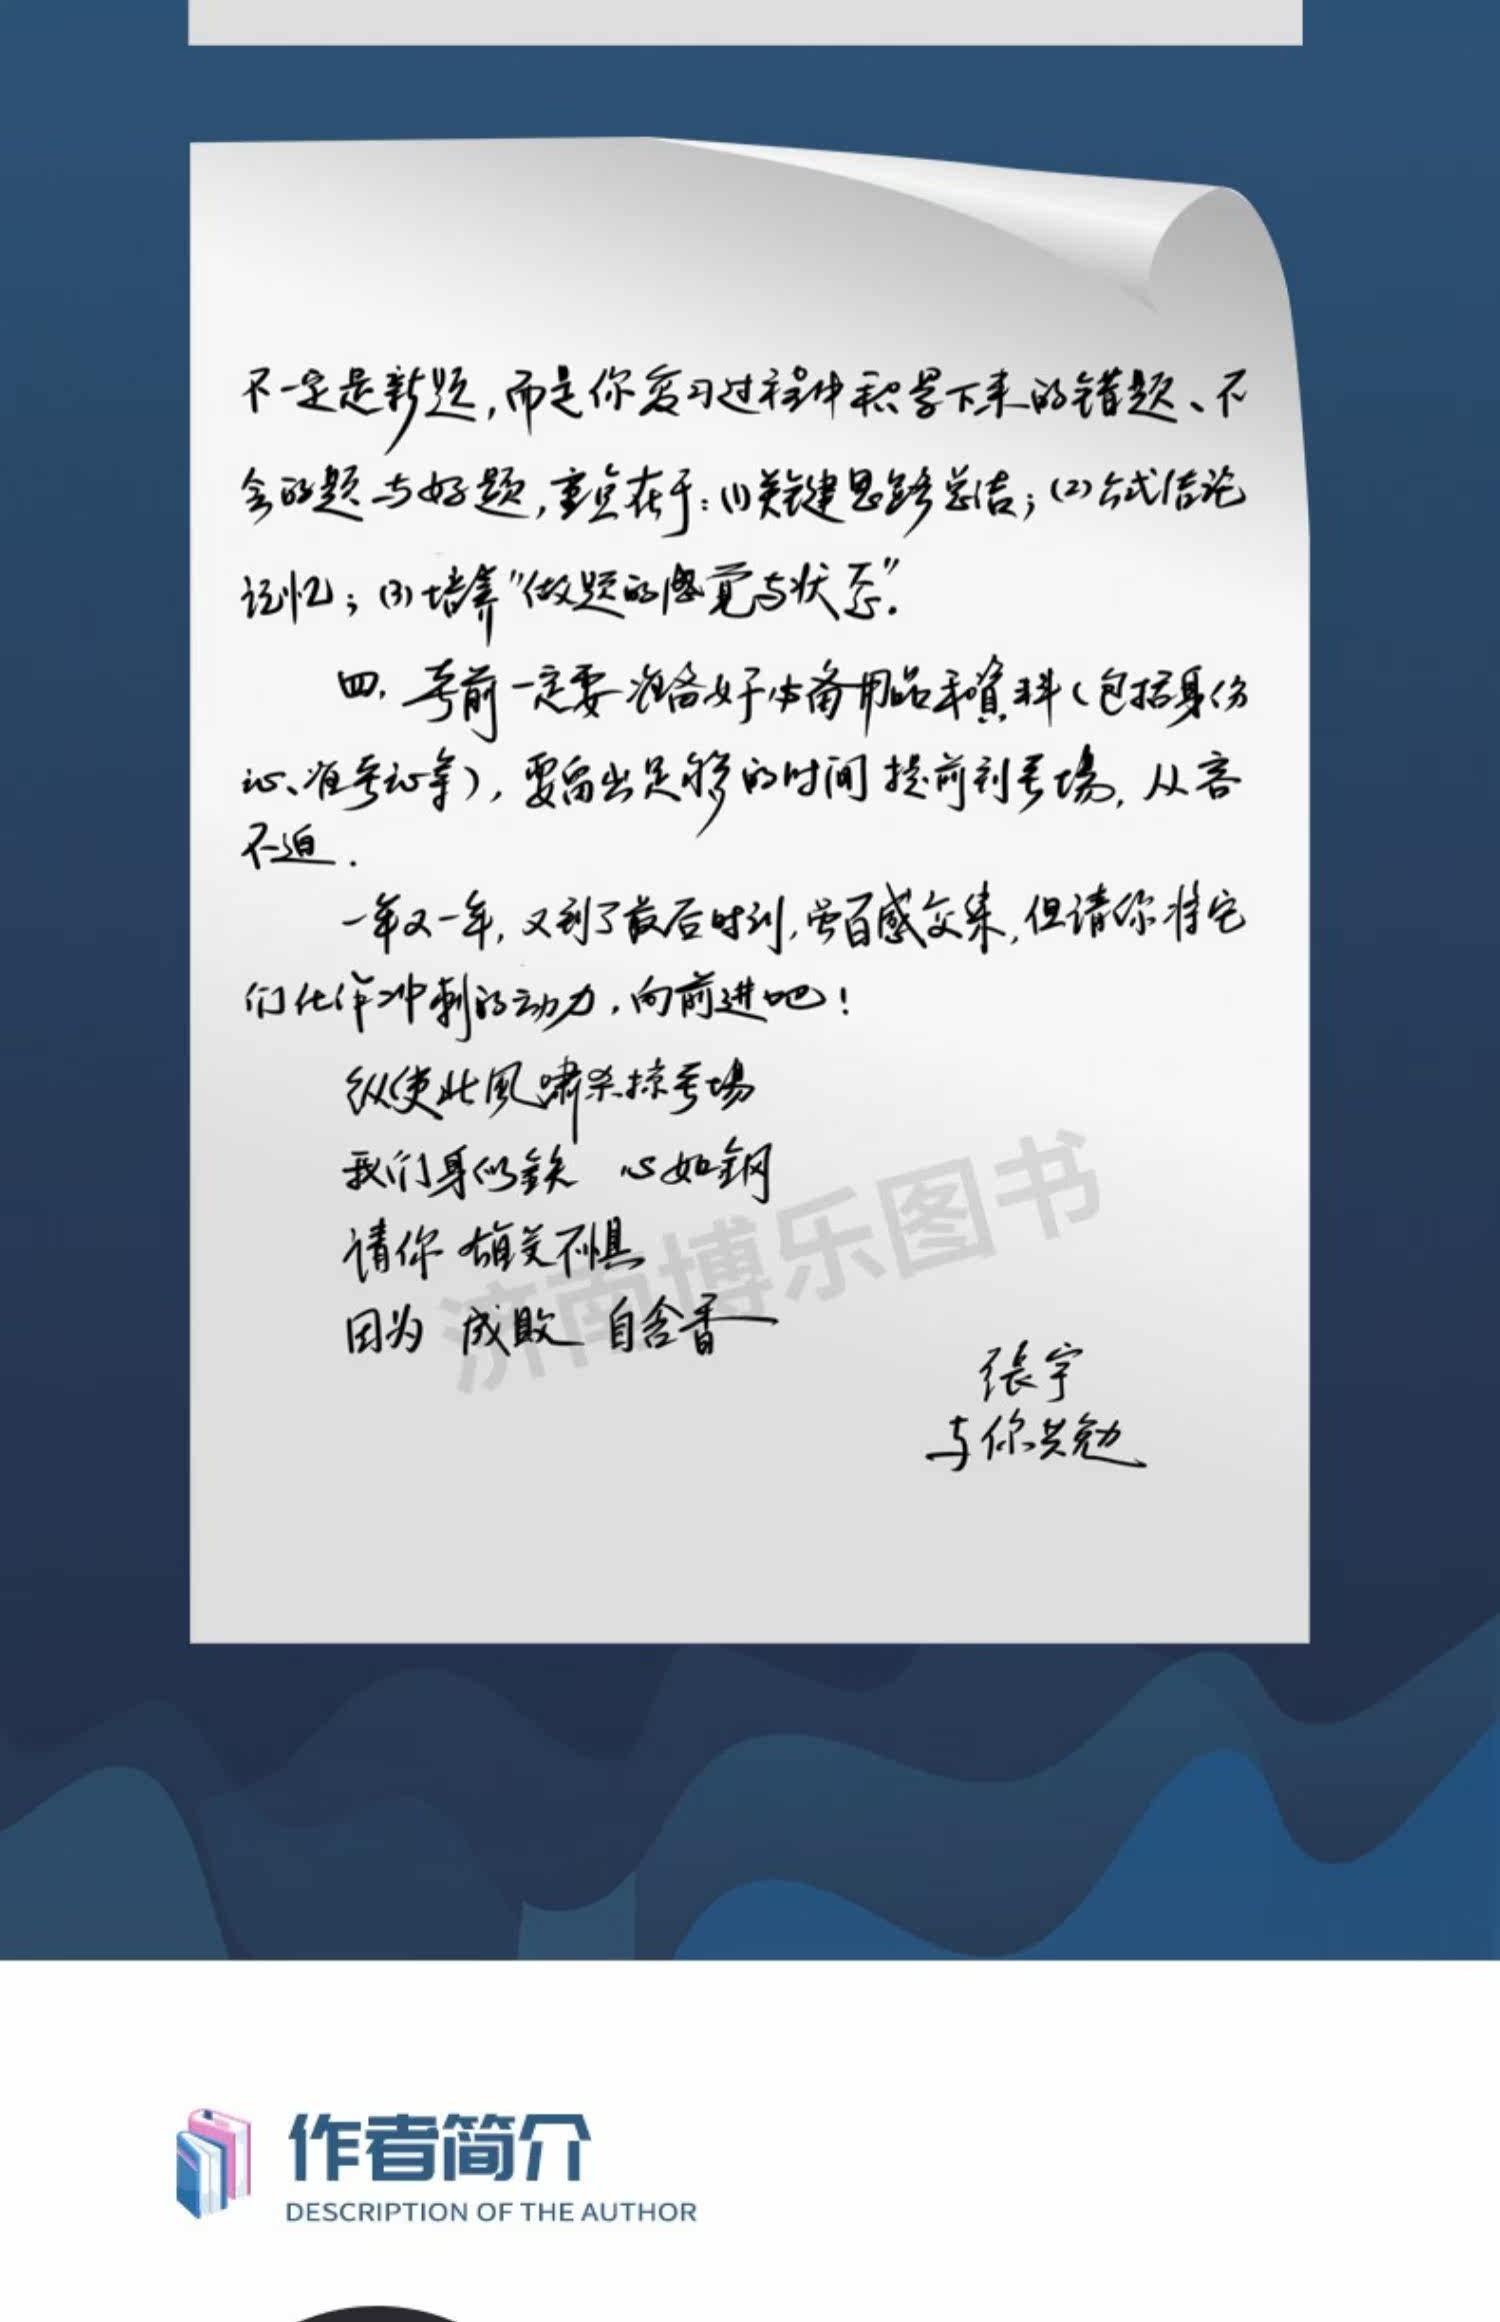 不一定是新题，而是你复习过程中积累下来的错题、不
会的题与好题，重点在于：(1)关键思路总结；(2)公式结论
记忆；(3)培养"做题的感觉与状态"。
四、考前一定要准备好必备用品和資料（包括身份
证、准考证等），要留出足够的时间提前到考場，从容
不迫．
一年又一年，又到了最后时刻，虽百感交集，但请你将它
们化作冲刺的动力，向前进吧！
纵使北風啸杀掠考場
我们身似鉄 心如钢
请你 雄关不惧
因为 成败 自含香
張宇
与你共勉
济南博乐图书
作者简介
DESCRIPTION OF THE AUTHOR